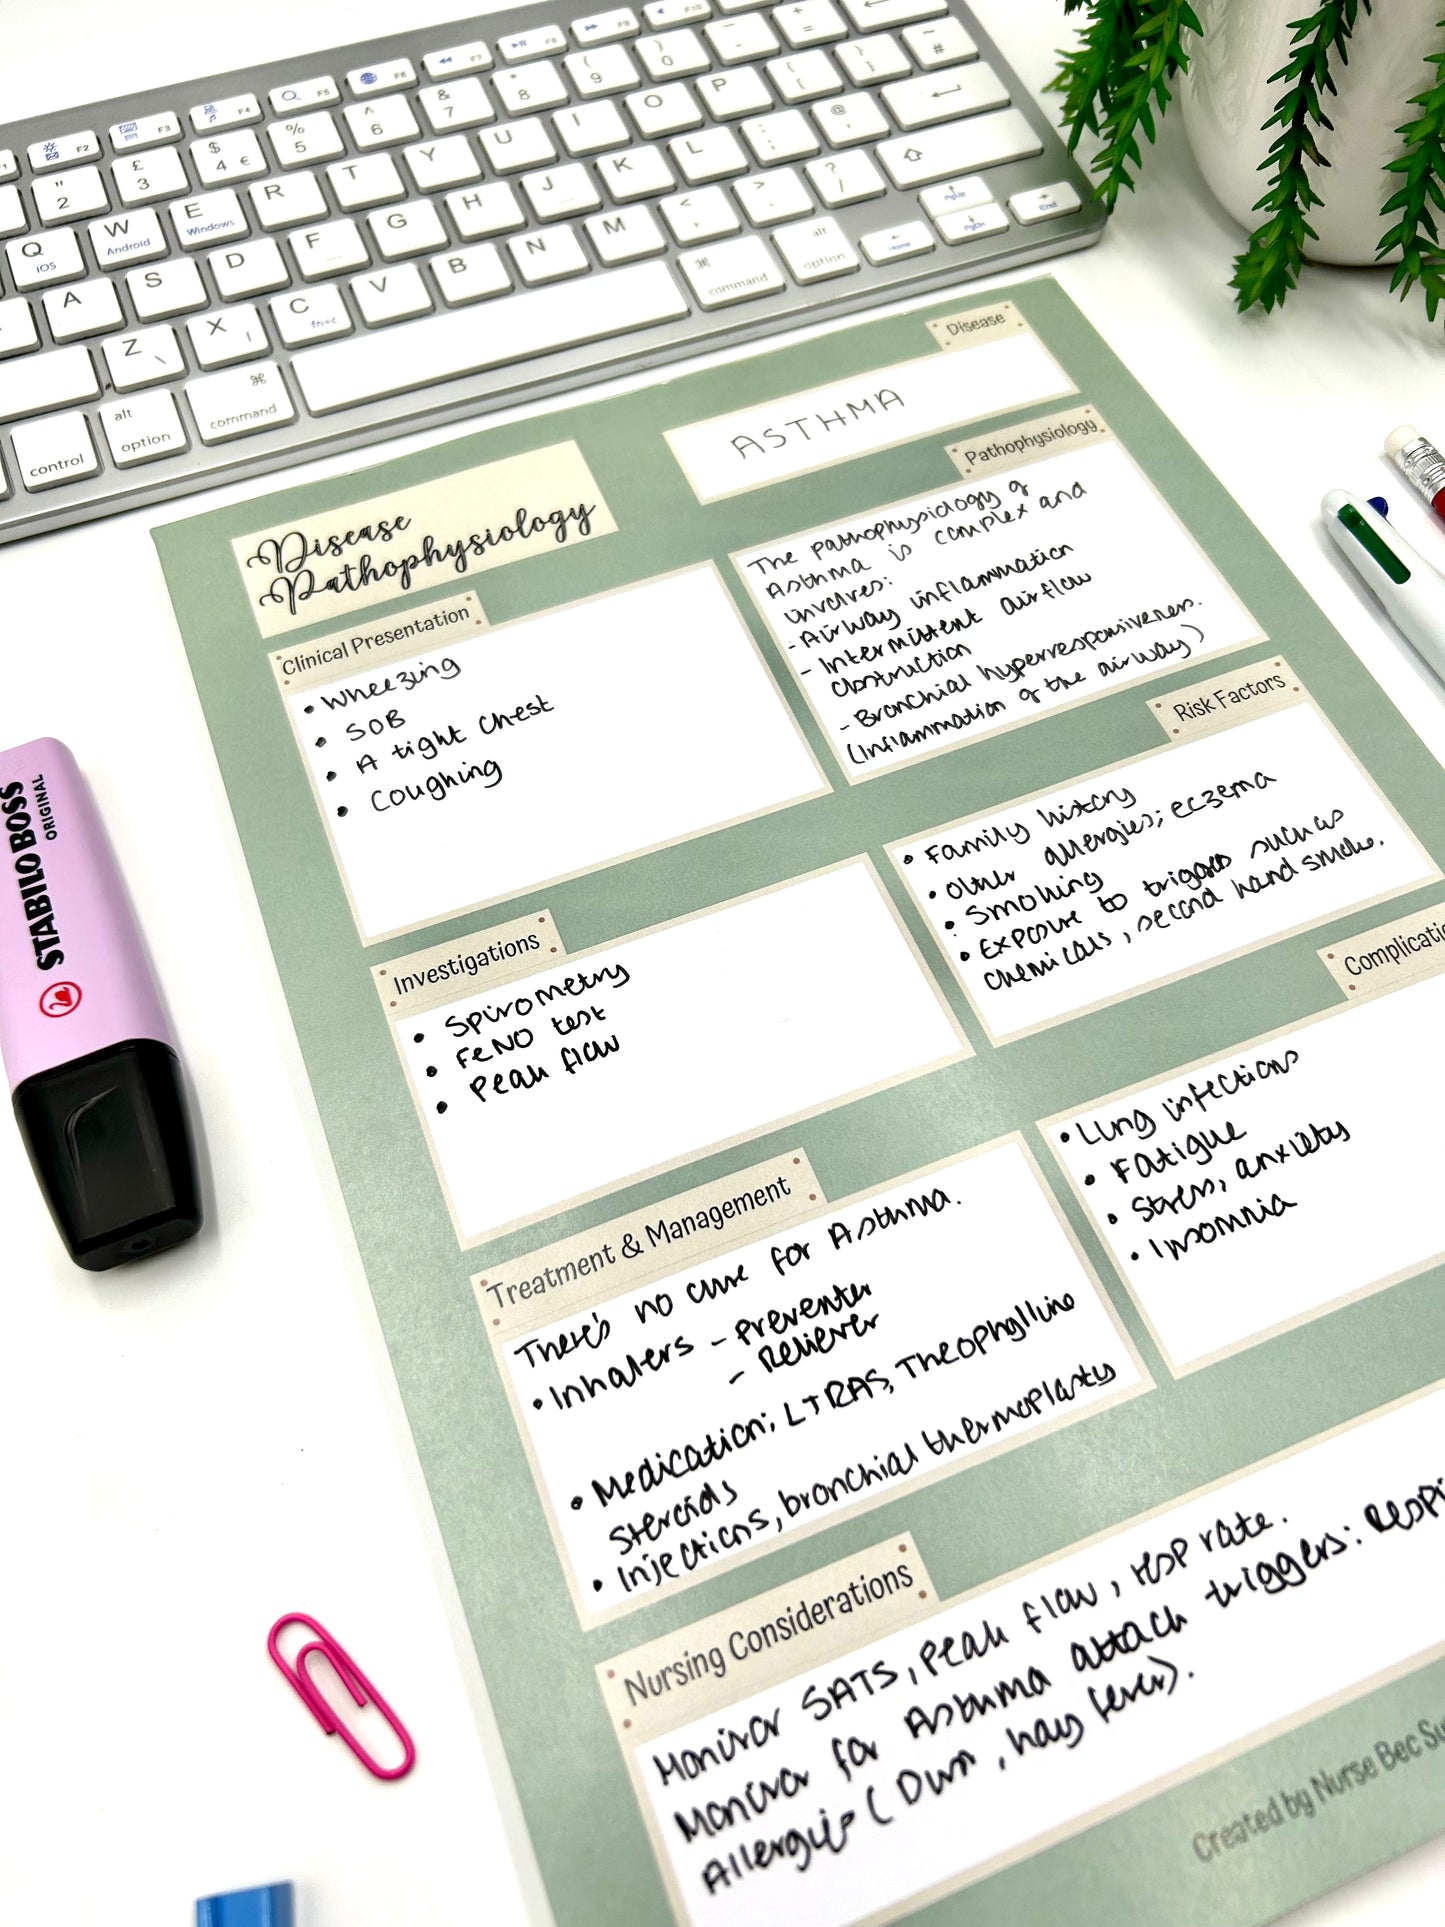 Disease
ASTHMA
Disease
Pathophysiology
Pathophysiology
The pathophysiology of
Asthma is complex and
involves:
- Airway inflammation
- Intermittent airflow
obstruction
- Bronchial hyperresponsiveness.
(Inflammation of the airway)
Clinical Presentation
• Wheezing
• SOB
• A tight chest
• Coughing
Risk Factors
• Family history
• other allergies; eczema
• Smoking
• Exposure to triggers such as
chemicals, second hand smoke.
Investigations
• Spirometry
• FeNO test
• Peak flow
Complicatio
• Lung infections
• Fatigue
• Stress, anxiety
• Insomnia
Treatment & Management
There's no cure for Asthma.
• Inhalers - Preventer
- Reliever
• Medication; LTRAS, Theophylline
Steroids
• Injections, bronchial thermoplasty
Nursing Considerations
Monitor SATS, peak flow, resp rate.
Monitor for Asthma attack triggers: Respi
Allergies (Dust, hay fever).
Created by Nurse Bec Su
STABILO BOSS
ORIGINAL
F2
F3
F4
F5
F6
F7
F8
F9
F10
" 2
£ 3
$ 4 €
% 5
^ 6
& 7
* 8
( 9
) 0
Q iOS
W Android
E Windows
R
T
Y
U
I
O
P
A
S
D
F
G
H
J
K
L
Z
X
C fn+c
V
B
N
M
control
alt option
command
command
alt option
Home
PgUp
PgDn
End